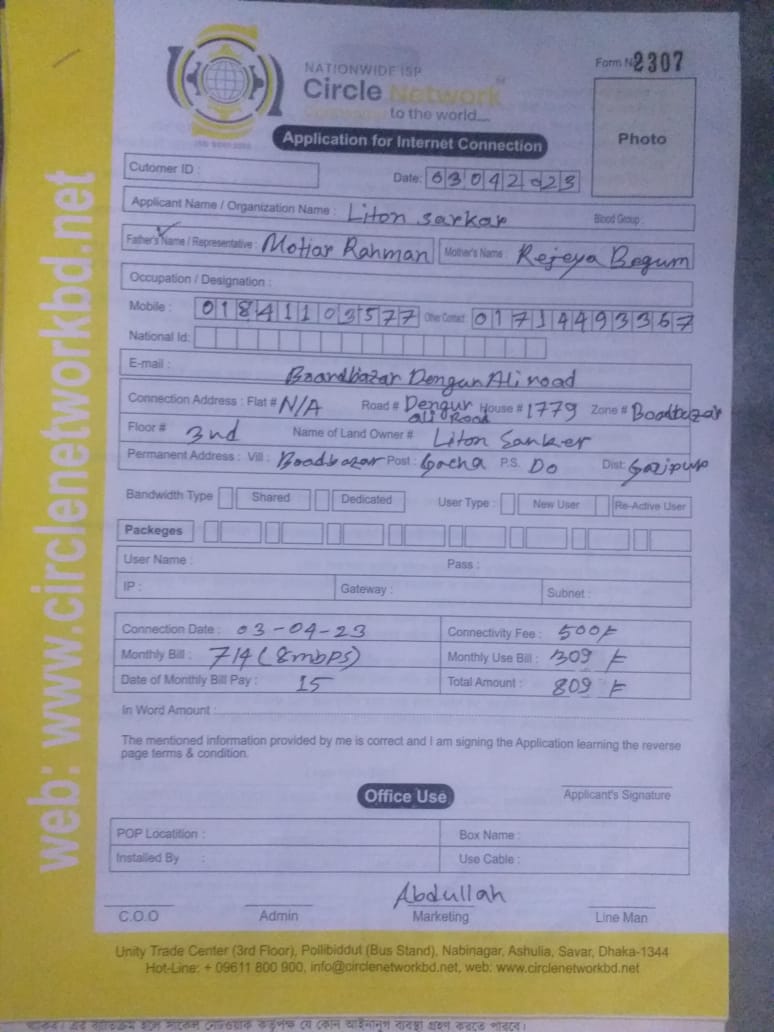 NATIONWIDE ISP
Circle Network
to the world....
Form No 2307
Application for Internet Connection
Photo
Cutomer ID :
Date: 03042023
Applicant Name / Organization Name : Liton sarkar
Blood Group :
Father's Name / Representative : Motiar Rahman
Mother's Name : Rejeya Begum
Occupation / Designation :
Mobile : 01841103577
Other Contact: 01714493367
National Id:
E-mail :
Boardbazar Dengun Ali road
Connection Address : Flat # N/A Road # Dengur Ali Road House # 1779 Zone # Boadbazar
Floor # 3nd Name of Land Owner # Liton Sanker
Permanent Address : Vill : Boadbazar Post : Gacha P.S. Do Dist: Gazipur
Bandwidth Type Shared Dedicated User Type : New User Re-Active User
Packeges
User Name : Pass :
IP : Gateway : Subnet :
Connection Date : 03-04-23 Connectivity Fee : 500/-
Monthly Bill : 714 (8mbps) Monthly Use Bill : 309 /-
Date of Monthly Bill Pay : 15 Total Amount : 809 /-
In Word Amount :
The mentioned information provided by me is correct and I am signing the Application learning the reverse
page terms & condition.
Applicant's Signature
Office Use
POP Locatition : Box Name :
Installed By : Use Cable :
Abdullah
C.O.O Admin Marketing Line Man
Unity Trade Center (3rd Floor), Pollibiddut (Bus Stand), Nabinagar, Ashulia, Savar, Dhaka-1344
Hot-Line: + 09611 800 900, info@circlenetworkbd.net, web: www.circlenetworkbd.net
web: www.circlenetworkbd.net